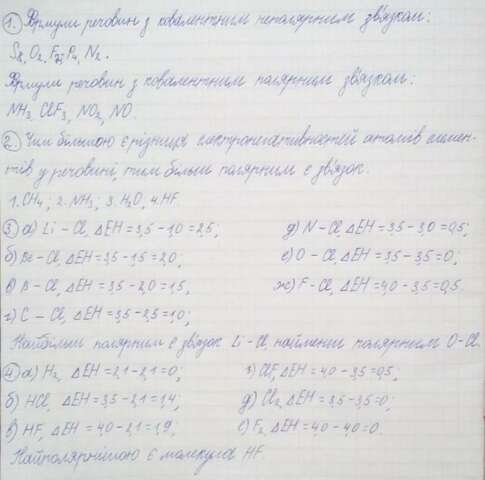 1. Формули речовин з ковалентним неполярним зв'язком:
S8, O2, F2, P4, N2.
Формули речовин з ковалентним полярним зв'язком:
NH3, ClF3, NO2, NO.
2. Чим більшою є різниця електронегативностей атомів елемен-
тів у речовині, тим більш полярним є зв'язок.
1. CH4; 2. NH3; 3. H2O, 4. HF.
3 а) Li – Cl, ΔEH = 3,5 – 1,0 = 2,5;
б) Be – Cl, ΔEH = 3,5 – 1,5 = 2,0;
в) B – Cl, ΔEH = 3,5 – 2,0 = 1,5,
г) C – Cl, ΔEH = 3,5 – 2,5 = 1,0;
д) N – Cl, ΔEH = 3,5 – 3,0 = 0,5;
е) O – Cl, ΔEH = 3,5 – 3,5 = 0;
ж) F – Cl, ΔEH = 4,0 – 3,5 = 0,5.
Найбільш полярним є зв'язок Li – Cl, найменш полярним O – Cl.
4 а) H2, ΔEH = 2,1 – 2,1 = 0;
б) HCl, ΔEH = 3,5 – 2,1 = 1,4;
в) HF, ΔEH = 4,0 – 2,1 = 1,9,
г) ClF, ΔEH = 4,0 – 3,5 = 0,5,
д) Cl2, ΔEH = 3,5 – 3,5 = 0;
е) F2, ΔEH = 4,0 – 4,0 = 0.
Найполярнішою є молекула HF.